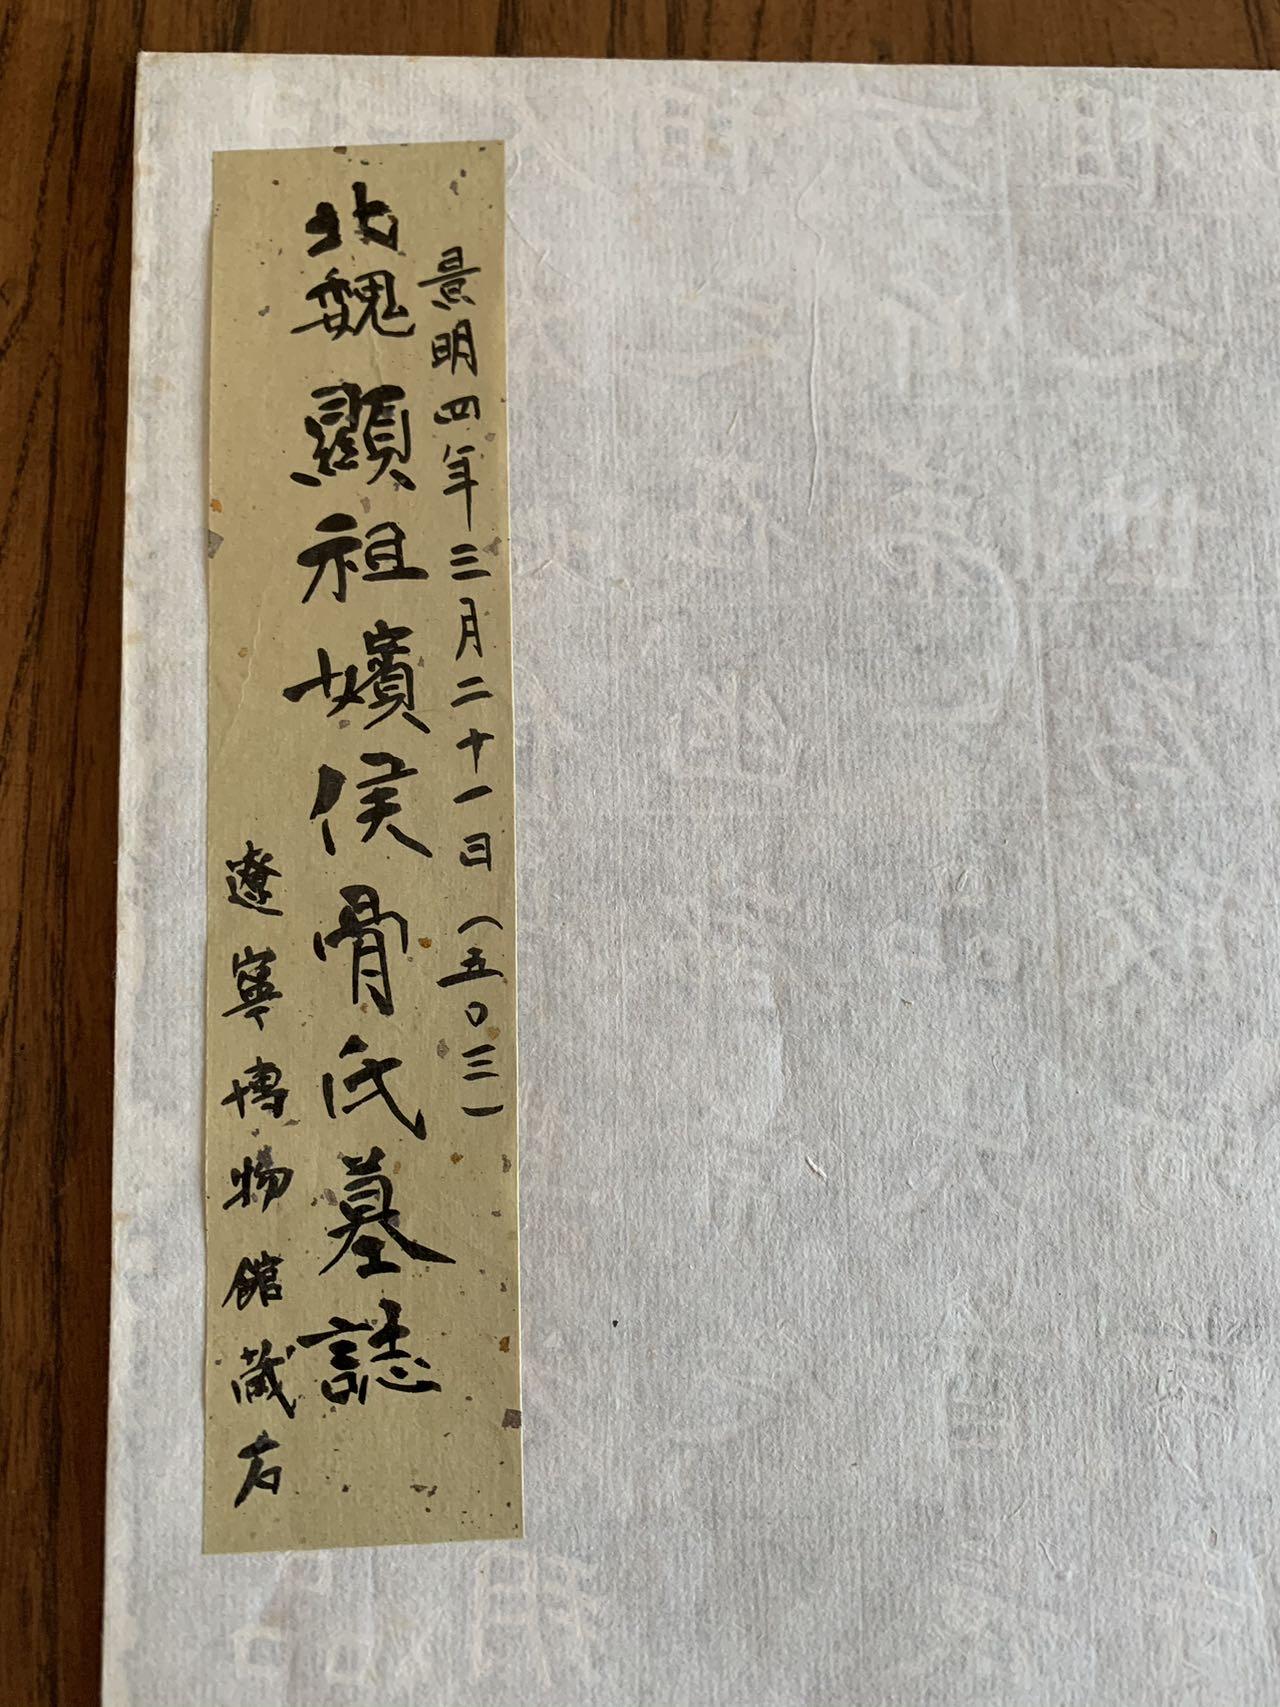 景明四年三月二十一日（五〇三）
北魏顯祖嬪侯骨氏墓誌
遼寧博物館蔵石